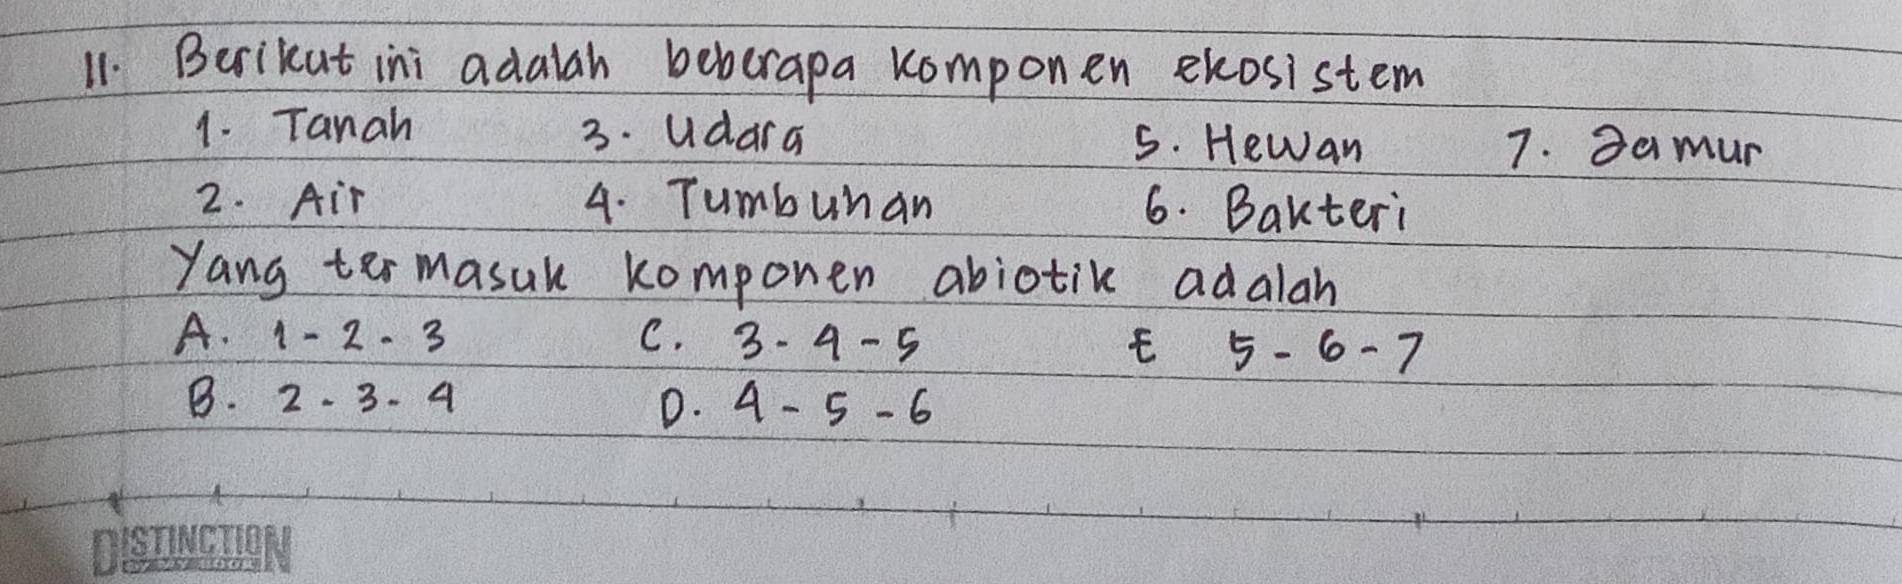 11. Berikut ini adalah beberapa komponen ekosistem
1. Tanah 3. Udara 5. Hewan 7. Jamur
2. Air 4. Tumbuhan 6. Bakteri
Yang termasuk komponen abiotik adalah
A. 1-2-3 C. 3-4-5 E 5-6-7
B. 2-3-4 D. 4-5-6
DISTINCTION